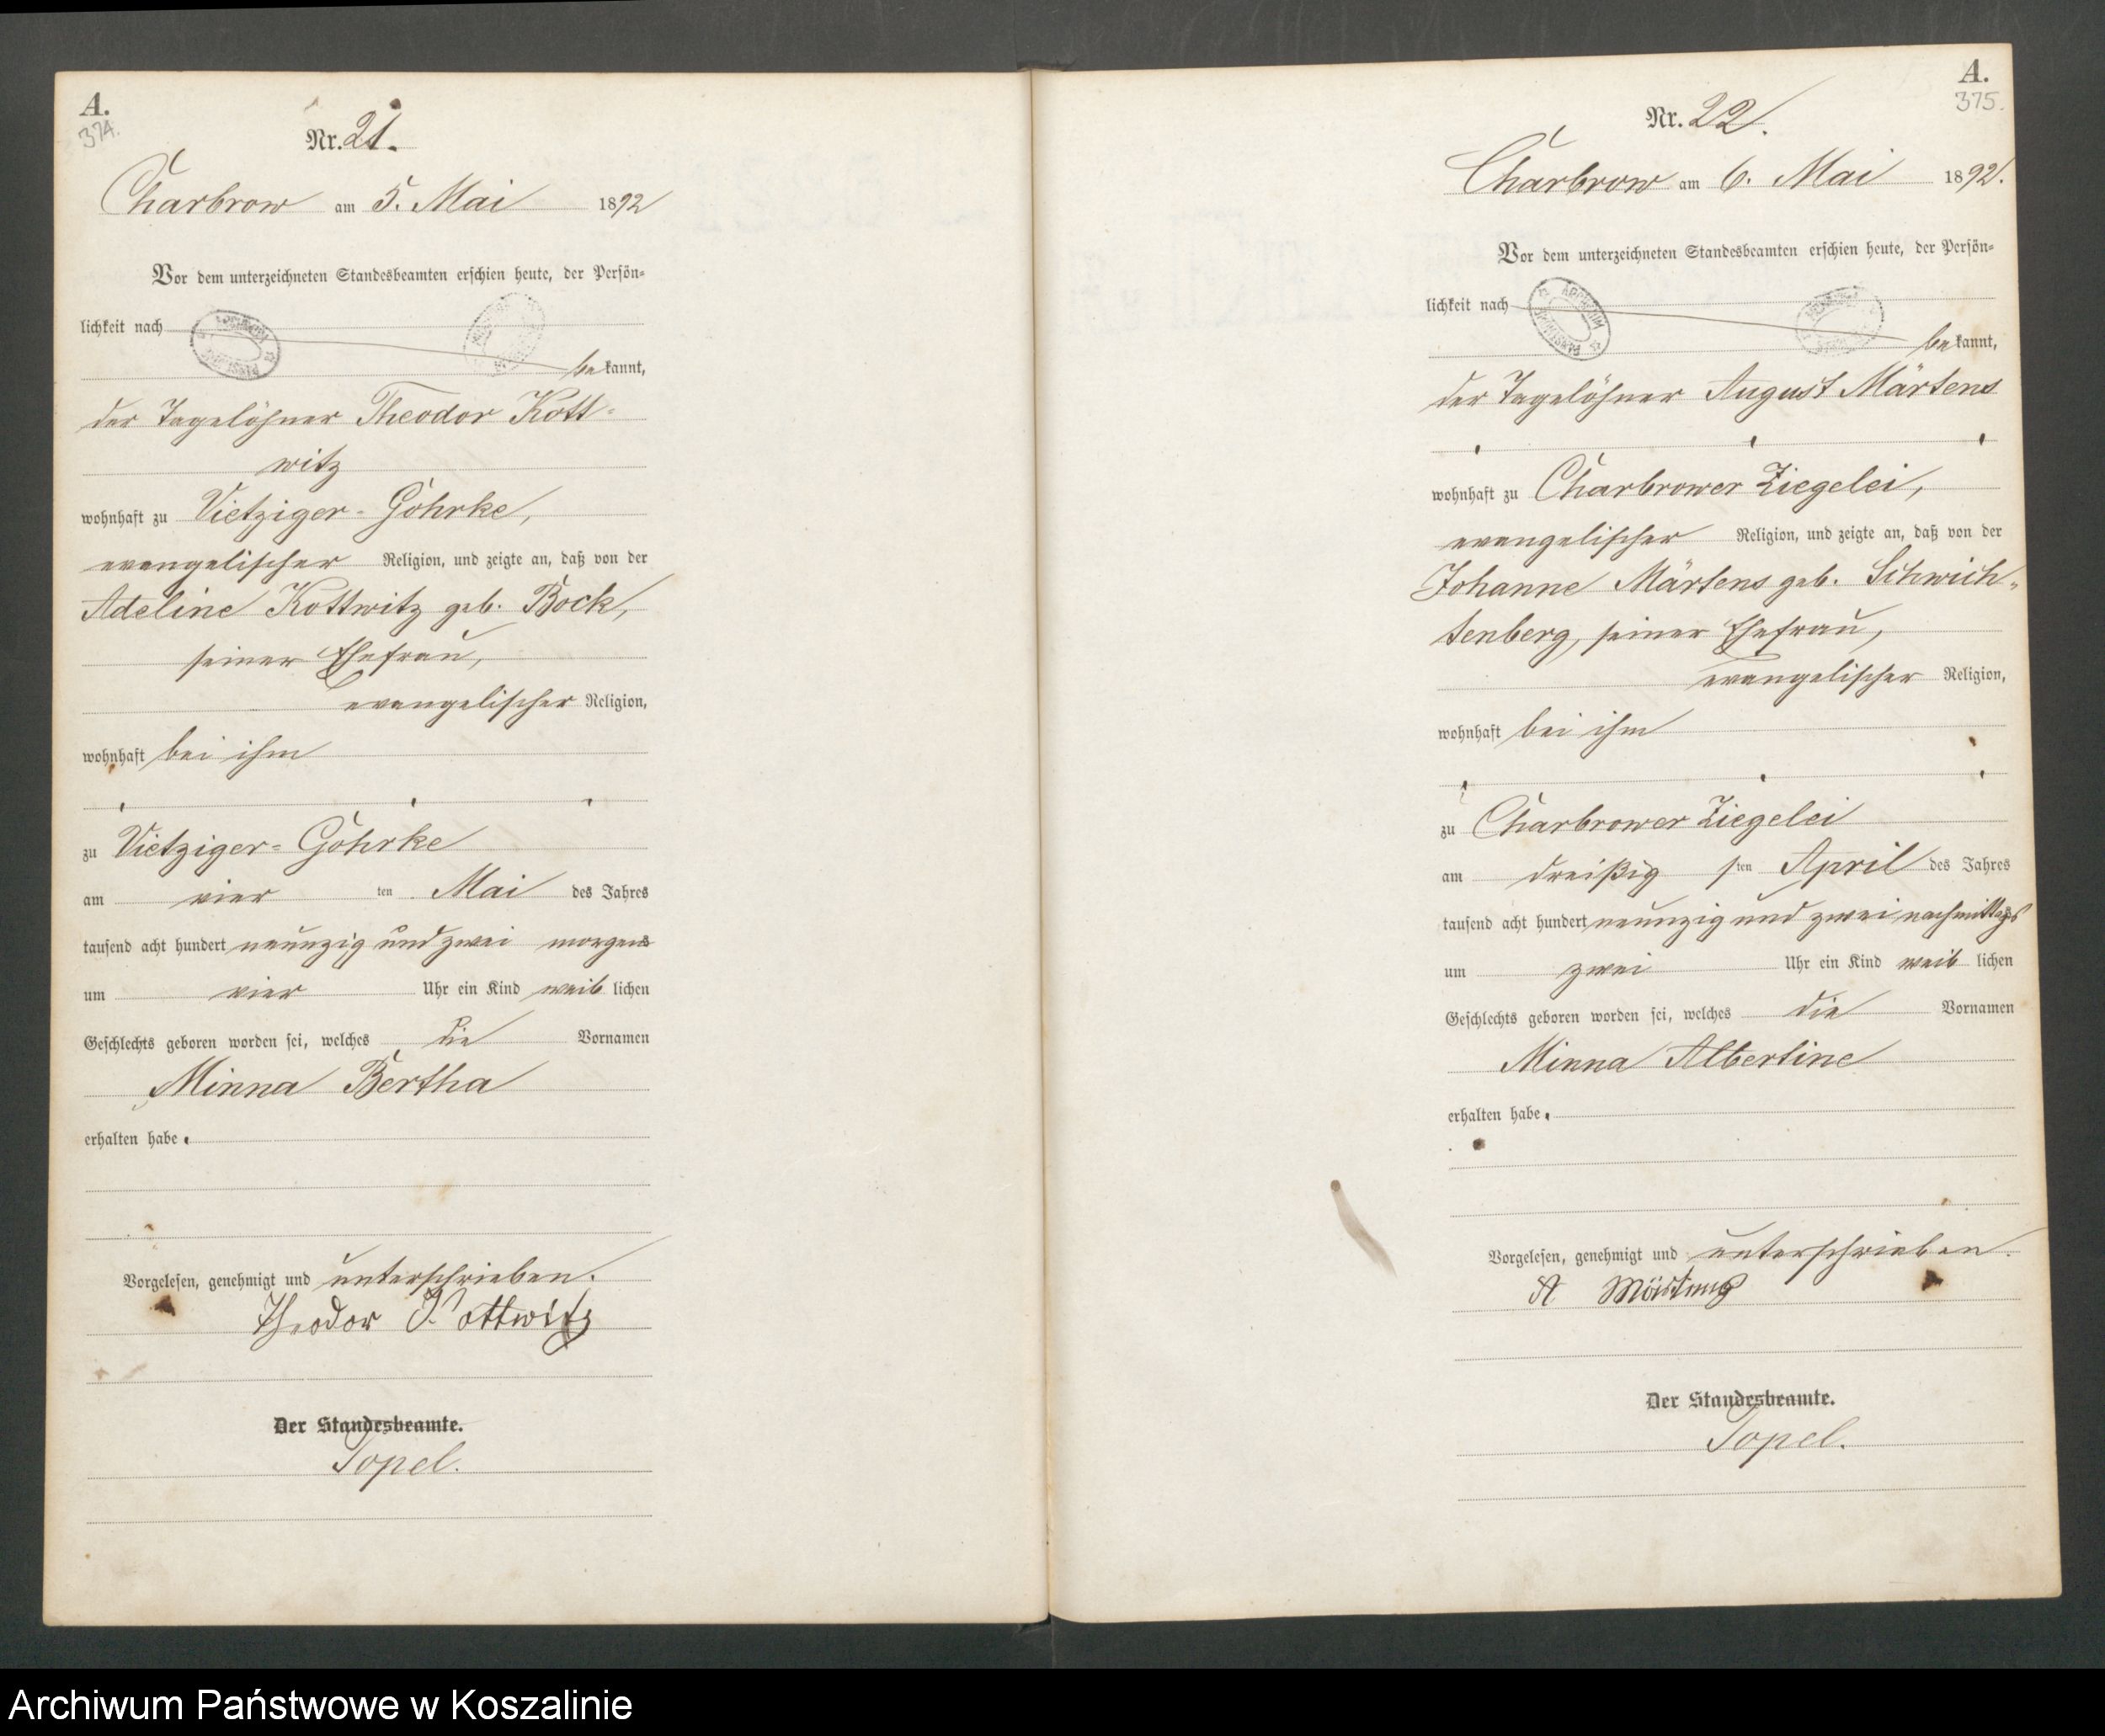 A.
374.
Nr. 21.
Charbrow am 5. Mai 1892
Vor dem unterzeichneten Standesbeamten erschien heute, der Persön-
lichkeit nach
bekannt,
der Tagelöhner Theodor Kott-
witz
wohnhaft zu Vietziger-Gohrke,
evangelischer Religion, und zeigte an, daß von der
Adeline Kottwitz geb. Bock,
seiner Ehefrau,
evangelischer Religion,
wohnhaft bei ihm
zu Vietziger-Gohrke
am vier ten Mai des Jahres
tausend acht hundert neunzig und zwei morgens
um vier Uhr ein Kind weiblichen
Geschlechts geboren worden sei, welches die Vornamen
Minna Bertha
erhalten habe.
Vorgelesen, genehmigt und unterschrieben.
Theodor Kottwitz
Der Standesbeamte.
Topel.
A.
375.
Nr. 22.
Charbrow am 6. Mai 1892.
Vor dem unterzeichneten Standesbeamten erschien heute, der Persön-
lichkeit nach
bekannt,
der Tagelöhner August Märtens
wohnhaft zu Charbrower Ziegelei,
evangelischer Religion, und zeigte an, daß von der
Johanne Märtens geb. Schwich-
tenberg, seiner Ehefrau,
evangelischer Religion,
wohnhaft bei ihm
zu Charbrower Ziegelei
am dreißig sten April des Jahres
tausend acht hundert neunzig und zwei nachmittags
um zwei Uhr ein Kind weiblichen
Geschlechts geboren worden sei, welches die Vornamen
Minna Albertine
erhalten habe.
Vorgelesen, genehmigt und unterschrieben.
A Märtens
Der Standesbeamte.
Topel.
Archiwum Państwowe w Koszalinie